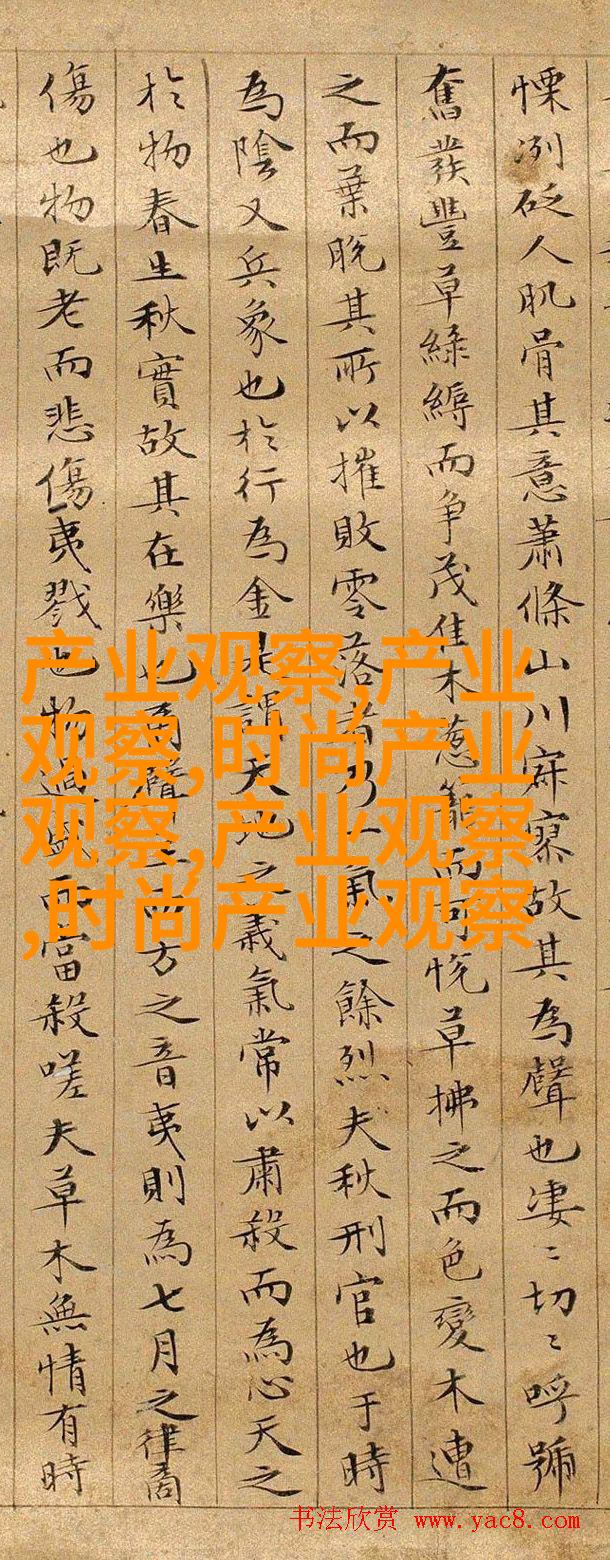 慄冽砭人肌骨其意蕭條山川寂寥故其為聲也凄〻切〻呼號
奮發豐草綠縟而爭茂佳木葱籠而可悅草拂之而色變木遭
之而葉脫其所以摧敗零落者乃一氣之餘烈夫秋刑官也于時
為陰又兵象也於行為金是謂天地之義氣常以肅殺而為心天之
於物春生秋實故其在樂也商聲主西方之音夷則為七月之律商
傷也物既老而悲傷夷戮也物過盛而當殺嗟夫草木無情有時
产业观察,产业
观察,时尚产业
观察,产业观察
,时尚产业观察
书法欣赏 www.yac8.com